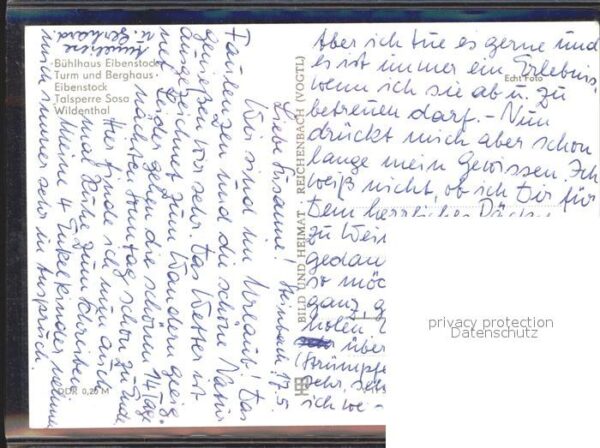 Bühlhaus Eibenstock
Turm und Berghaus
Eibenstock
Talsperre Sosa
Wildenthal
Liebe Susanne! Steinbach, 17.5.
Wir sind im Urlaub! Das
Faulenzen und die schöne Natur
genießen wir sehr. Das Wetter ist
ausgezeichnet zum Wandern geeig-
net. Leider gehen die schönen 14 Tage
nächsten Sonntag schon zu Ende.
Hier finde ich nun auch
mal Ruhe zum Schreiben.
Meine 4 Enkelkinder nehmen
mich immer sehr in Anspruch.
Aber ich tue es gerne und
es ist immer ein Erlebnis,
wenn ich sie ab u. zu
betreuen darf. - Nun
drückt mich aber schon
lange mein Gewissen. Ich
weiß nicht, ob ich Dir für
Dein herrliches
zu
gedan
so möc
ganz, g
holen.
über
(Strümpfe
sehr, seh
ich we -
u. Gerhard
Echt Foto
BILD UND HEIMAT REICHENBACH (VOGTL)
DDR 0,20 M
privacy protection
Datenschutz